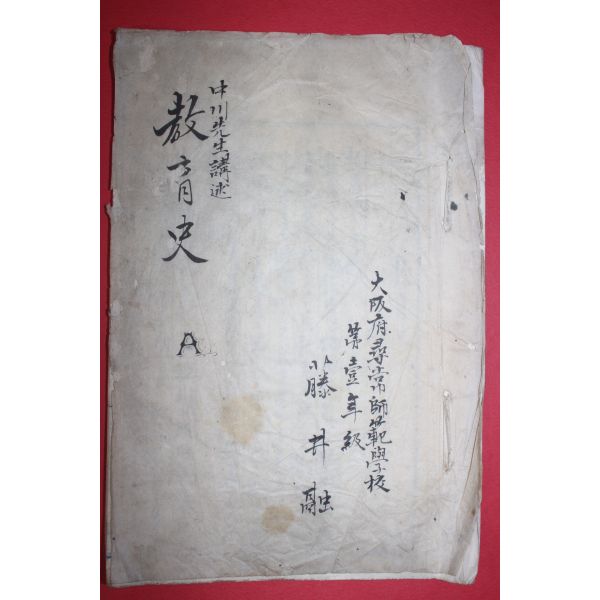 中川先生講述
教育史
A
大阪府尋常師範學校
第壹年級
藤井融